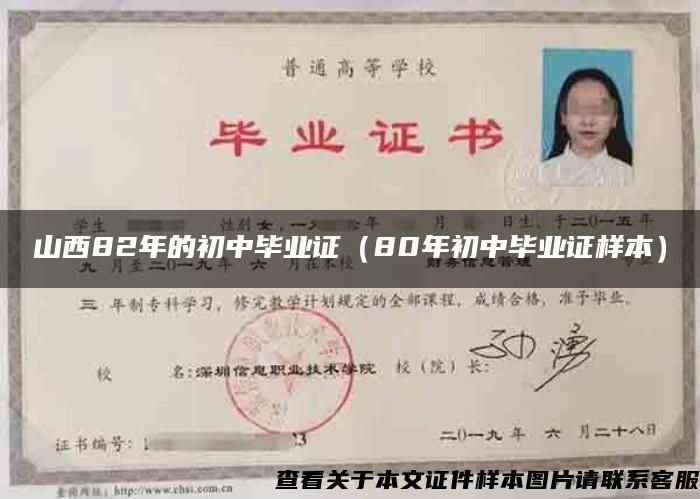 普通高等学校
毕业证书
学生 性别 女，一 年 月 日生，于二〇一五年
山西82年的初中毕业证（80年初中毕业证样本）
九 月至二〇一九年 六 月在本校 财务信息管理
三 年制专科学习，修完教学计划规定的全部课程，成绩合格，准予毕业。
校 名：深圳信息职业技术学院 校（院）长：
证书编号：
二〇一九年 六 月二十八日
查询网址：http://www.chsi.com.cn
查看关于本文证件样本图片请联系客服